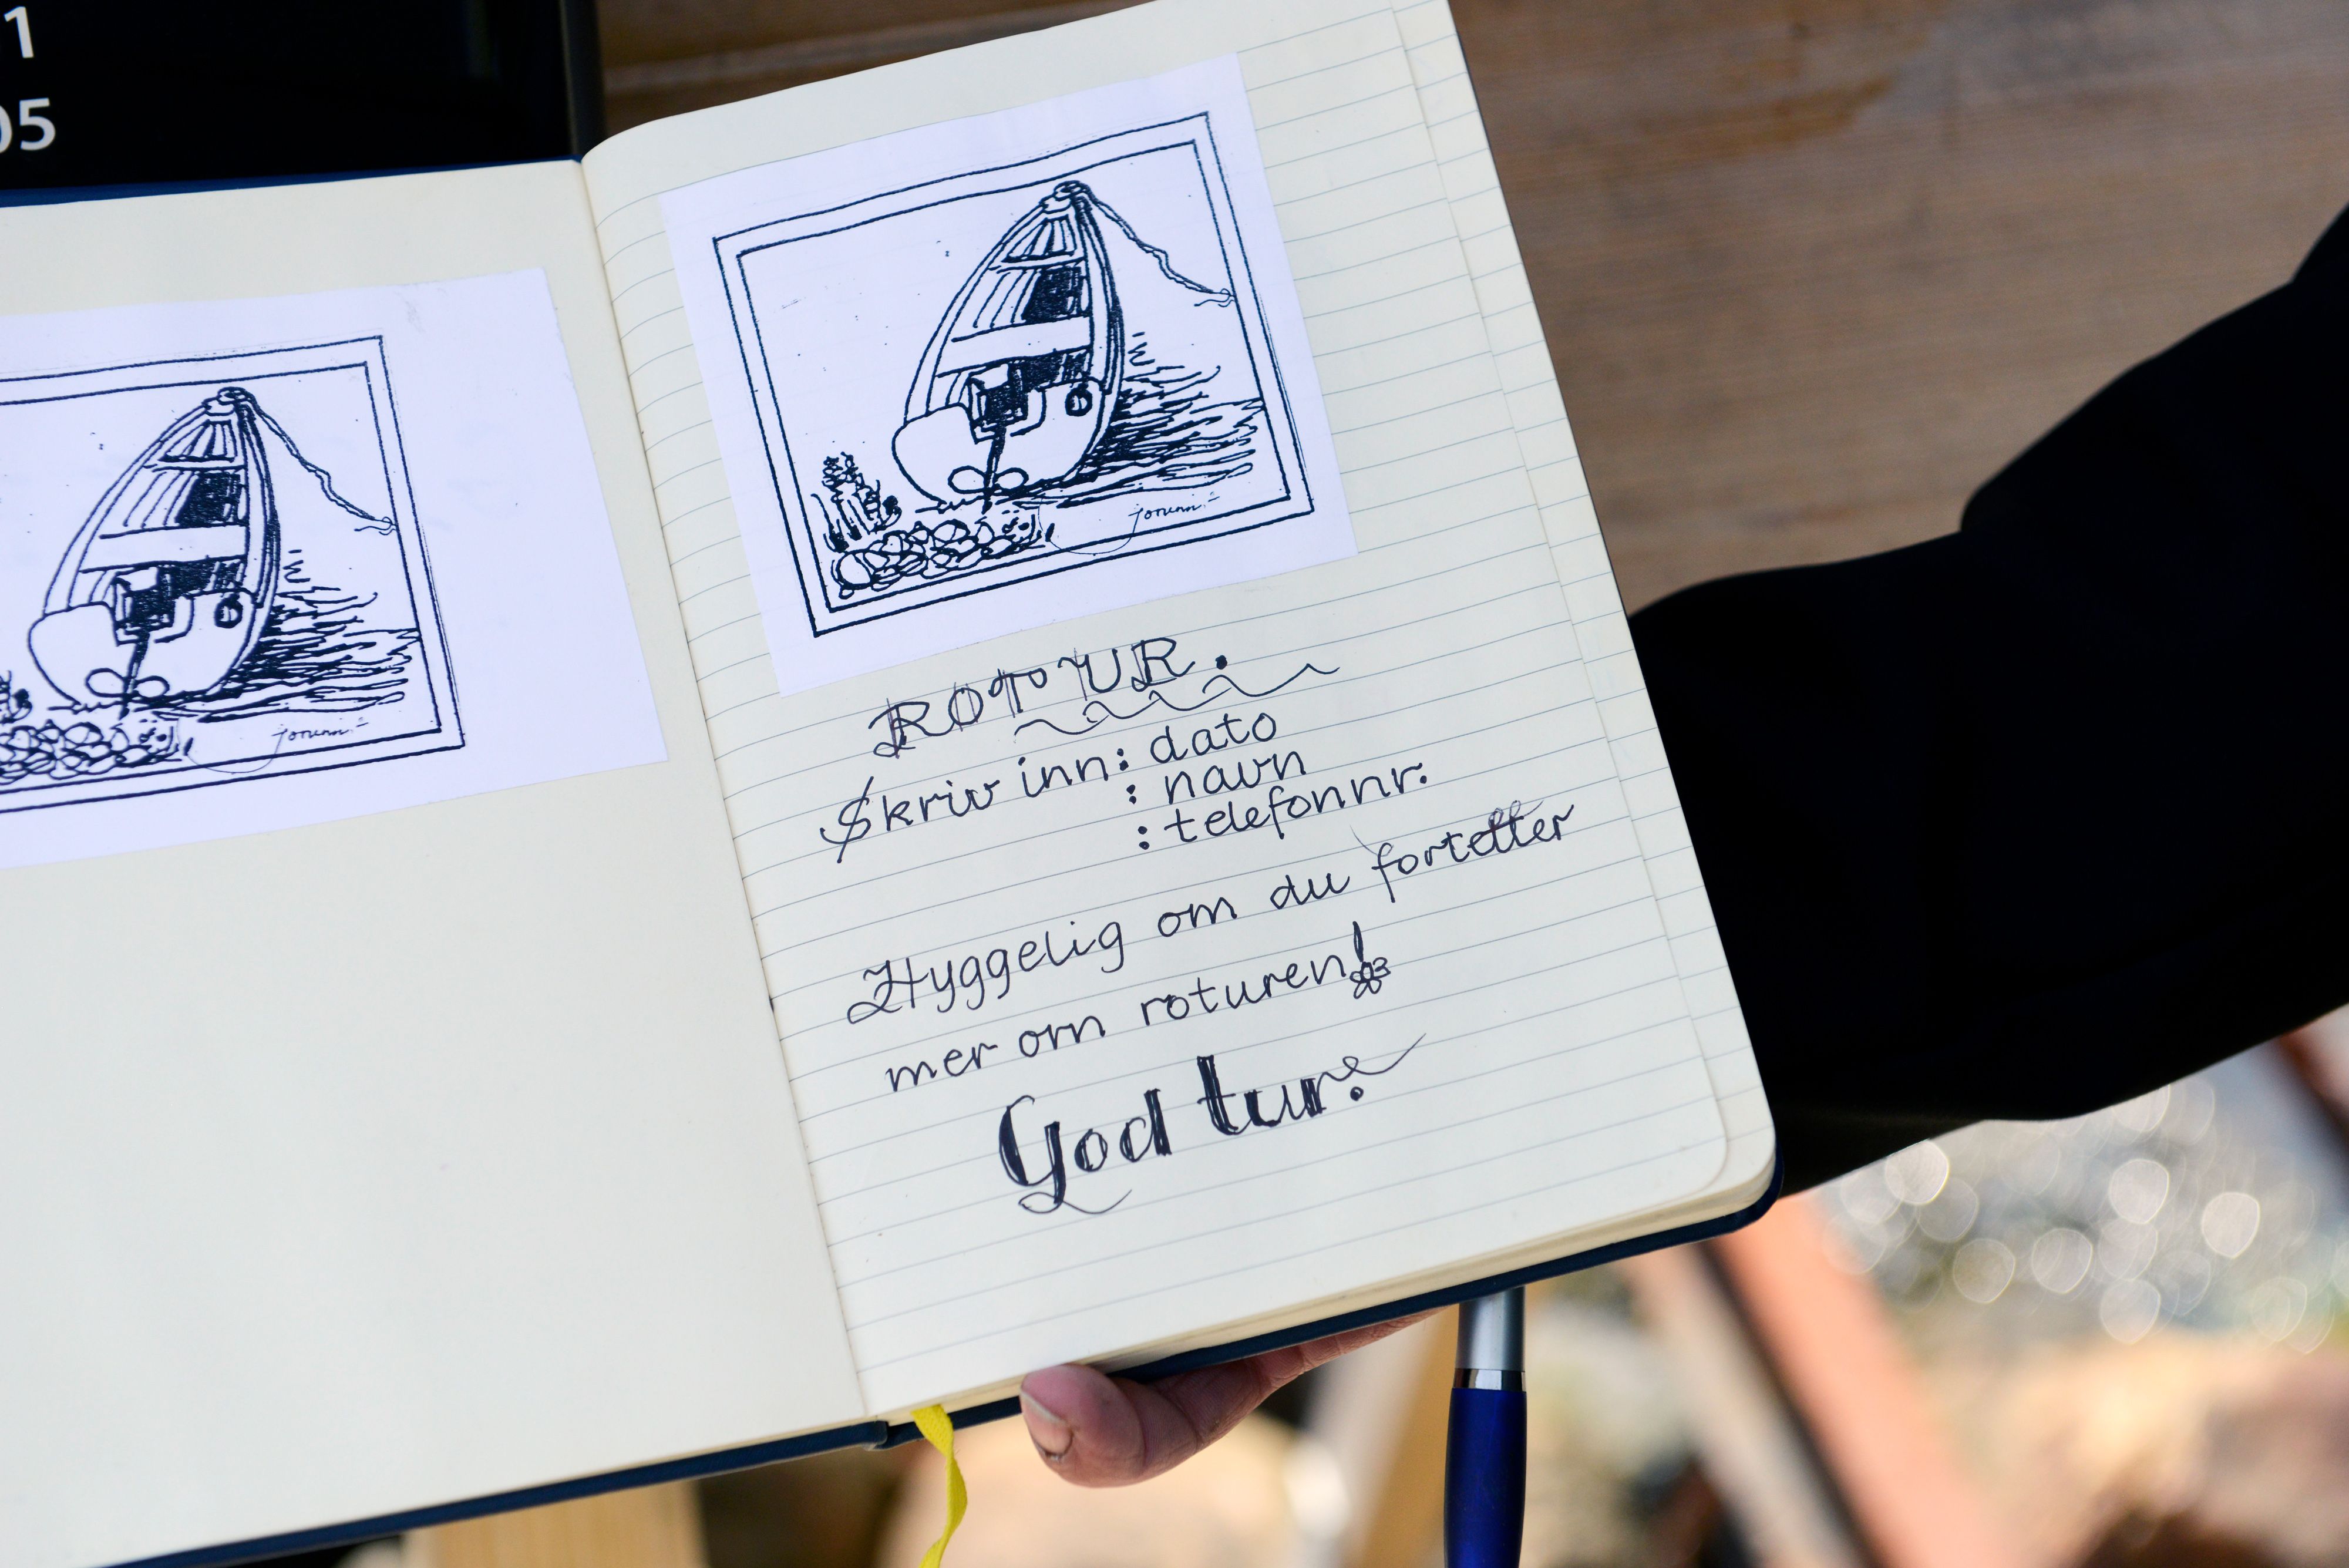 1
05
Jorunn.
Jorunn.
ROTUR.
Skriv inn: dato
: navn
: telefonnr.
Hyggelig om du forteller
mer om roturen!
God tur.